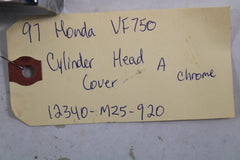 97 Honda VF750
Cylinder Head A chrome
Cover
12340-MZ5-920